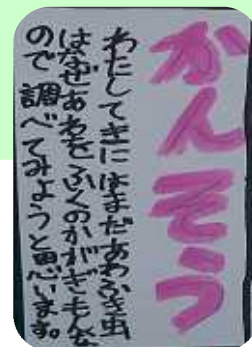 かんそう
わたしてきにはまだあわふき虫
はなぜあわをふくのかがぎもんな
ので調べてみようと思います。